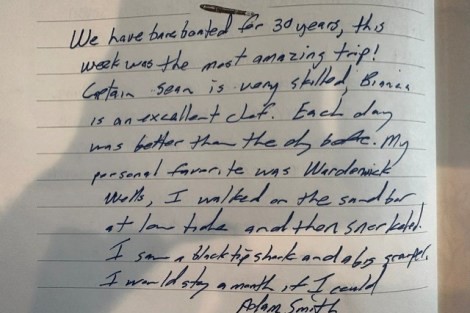 We have bareboated for 30 years, this
week was the most amazing trip!
Captain Sean is very skilled, Bianca
is an excellent chef. Each day
was better than the day before. My
personal favorite was Warderwick
Wells, I walked on the sandbar
at low tide and then snorkeled.
I saw a blacktip shark and a big
I would stay a month if I could
Adam Smith